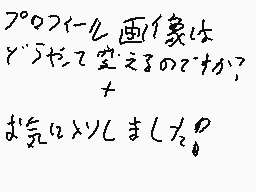 プロフィール画像は
どうやって変えるのですか?
+
お気に入りしました!